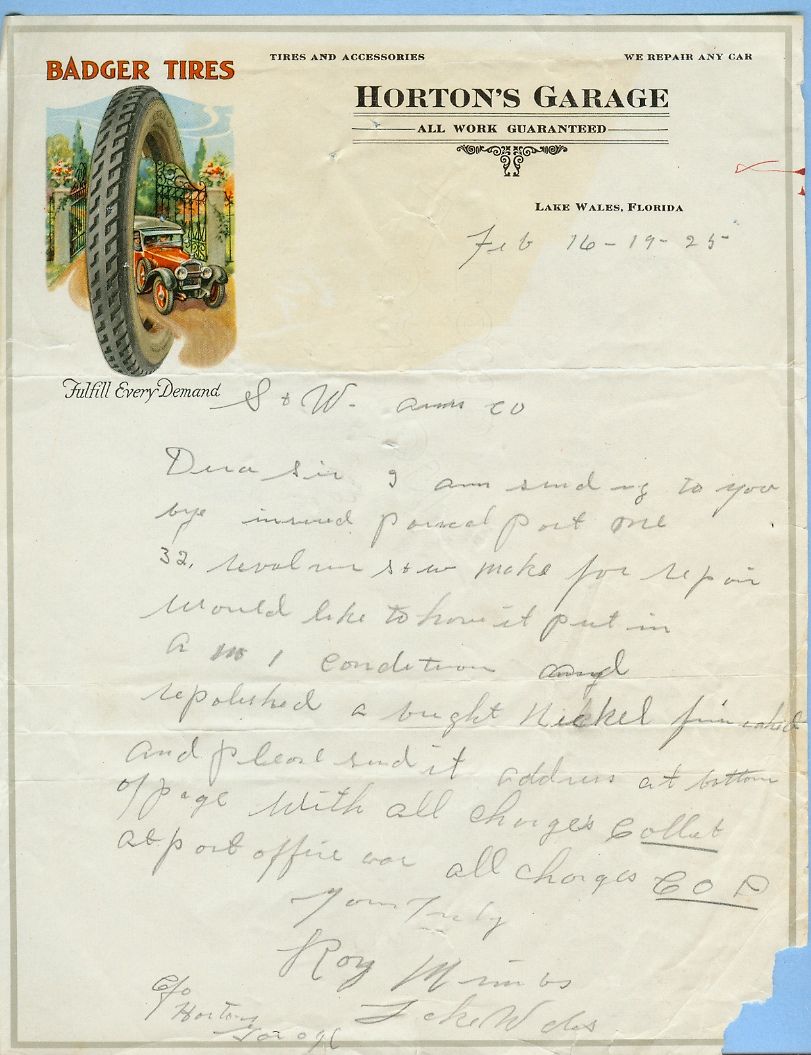 BADGER TIRES
TIRES AND ACCESSORIES
WE REPAIR ANY CAR
HORTON'S GARAGE
ALL WORK GUARANTEED
LAKE WALES, FLORIDA
Feb 16-19-25
Fulfill Every Demand
S & W. arms co
Dear Sir I am sending to you
bye insured parcel post one
32. revolver s & w make for repair
would like to have it put in
A no 1 condition and
repolished a bright Nickel finished
and please send it address at bottom
of page with all charges Collect
at post office all charges C O D
Yours Truly
Roy Mimbs
Lake Wales
c/o
Hortons
Garage